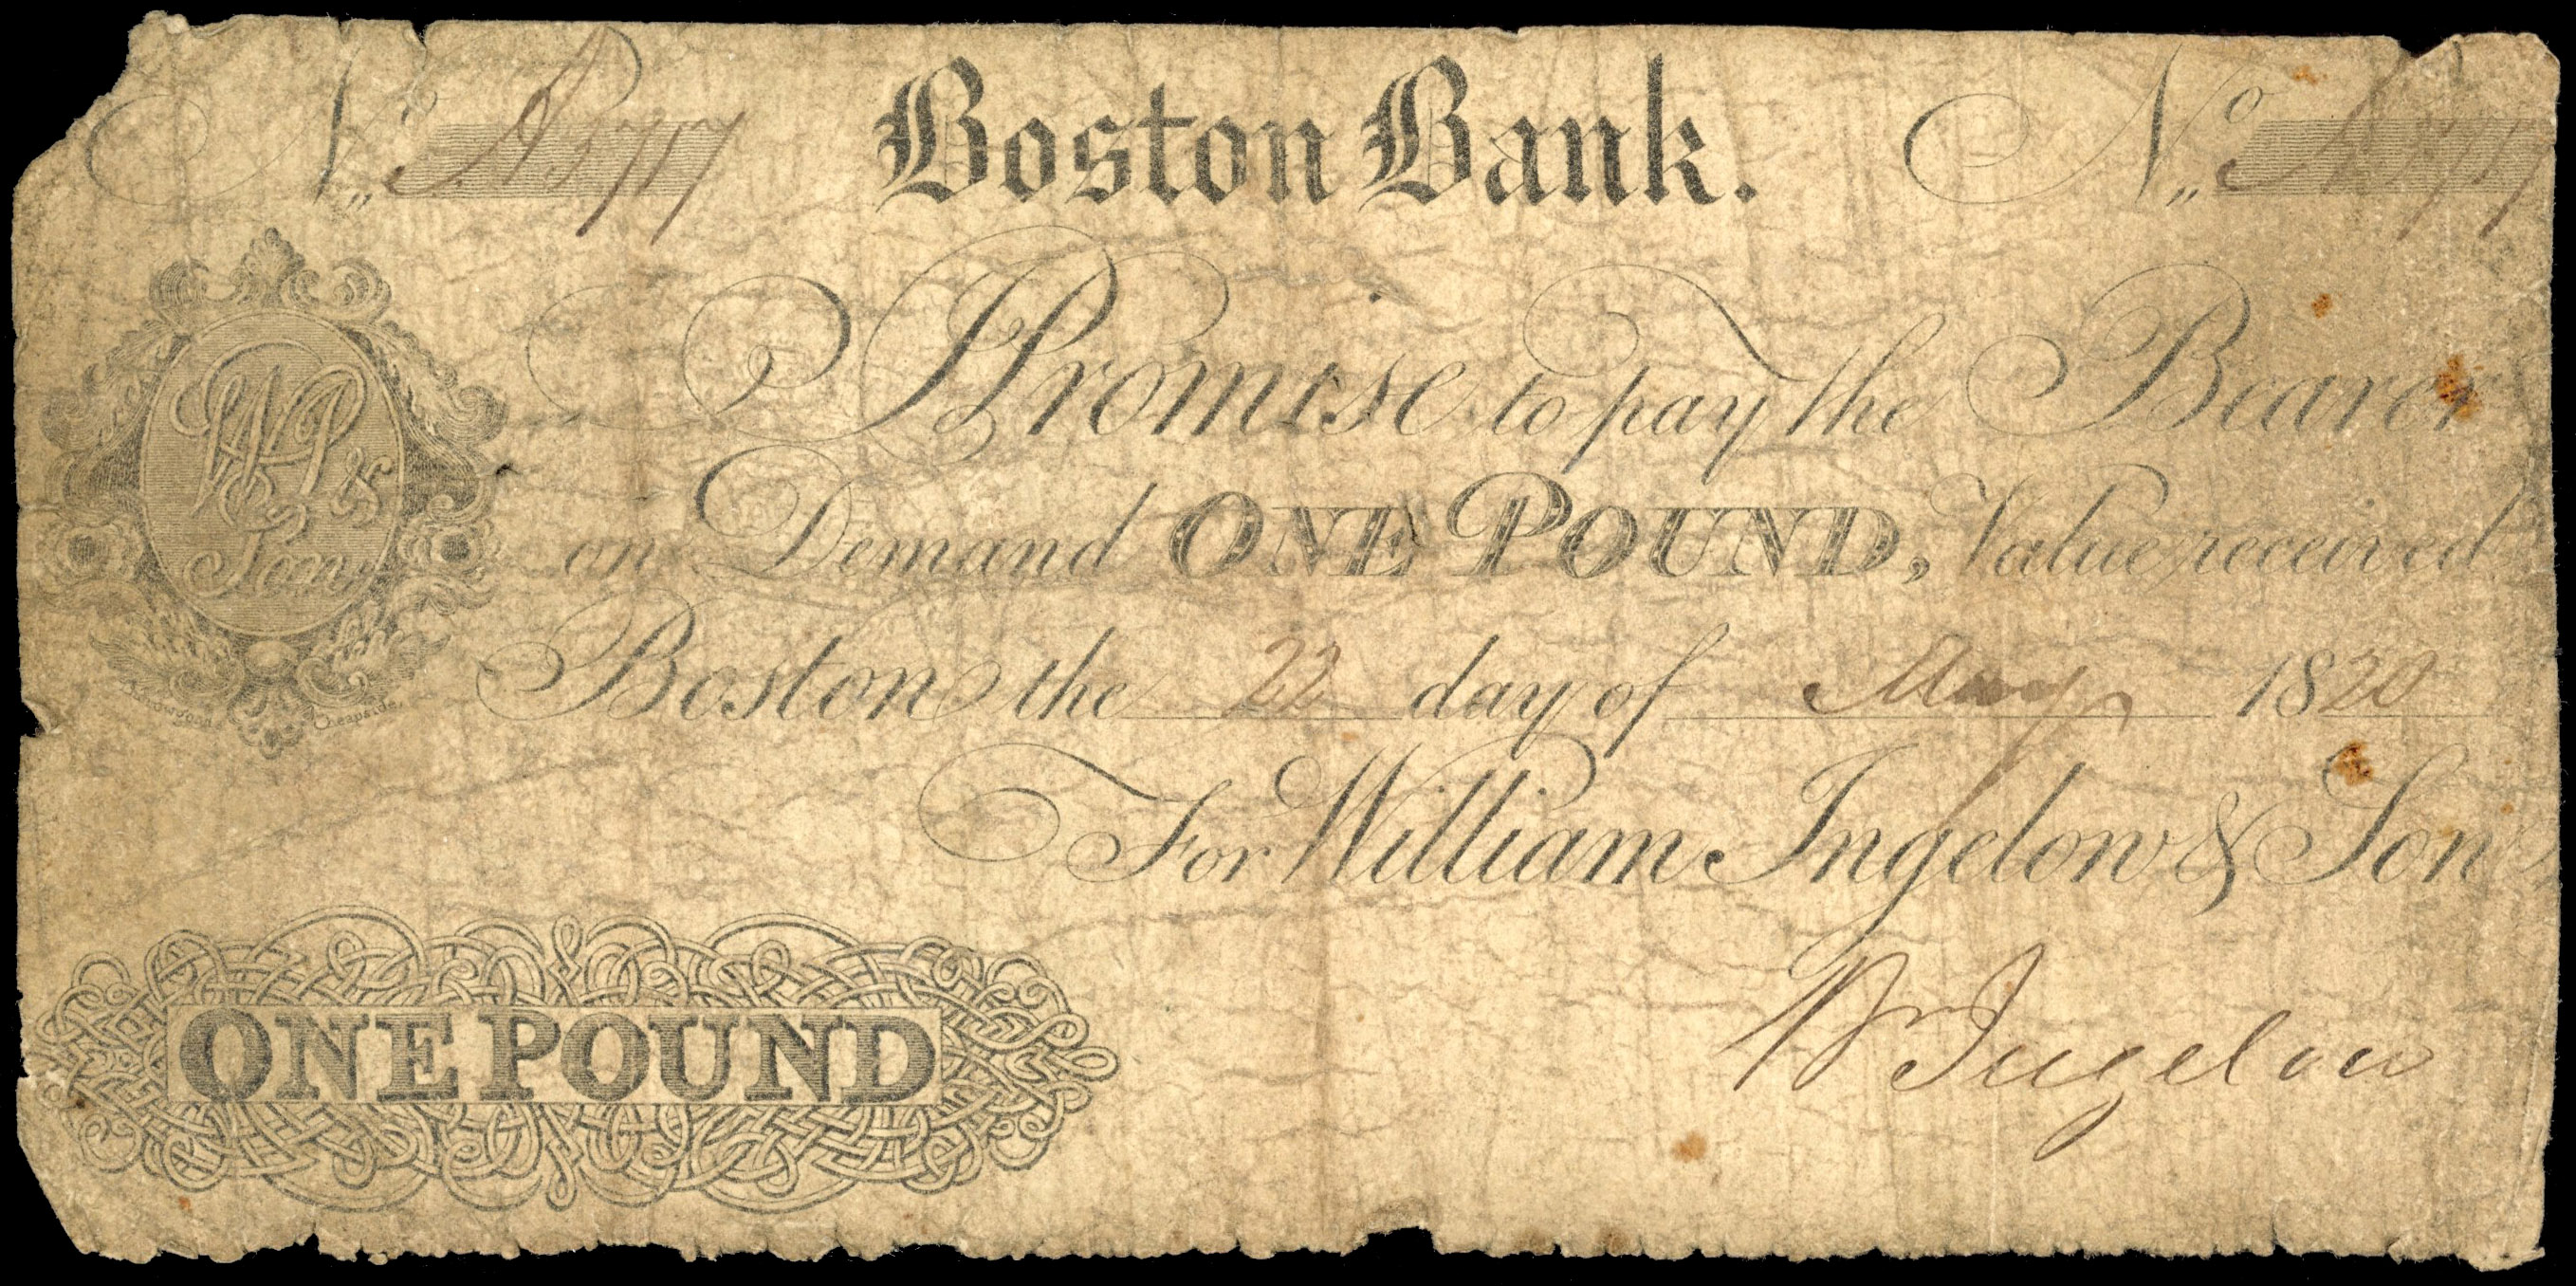 Boston Bank.
No A3717 No A3717
I Promise to pay the Bearer
on Demand ONE POUND, Value received
Boston the 22 day of May 1820
For William Ingelow & Son,
Wm Ingelow
WI & Son
Cheapside.
ONE POUND